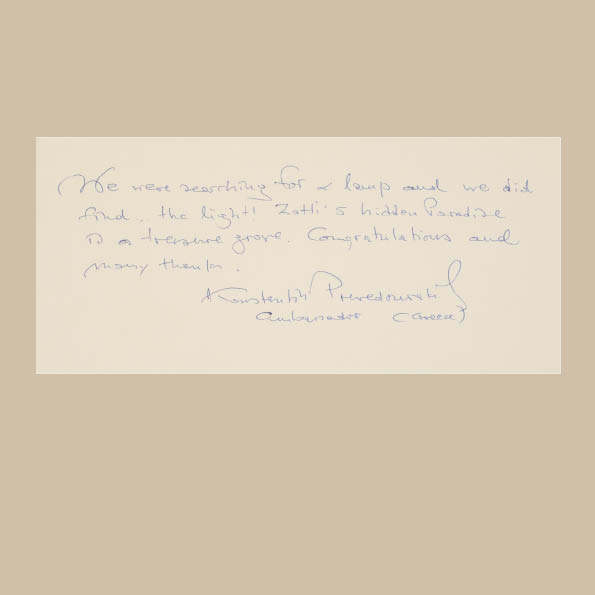 We were searching for a lamp and we did
find. the light! Zotti's hidden Paradise
is a treasure grove. Congratulations and
many thanks.
Ambassador (Greece)